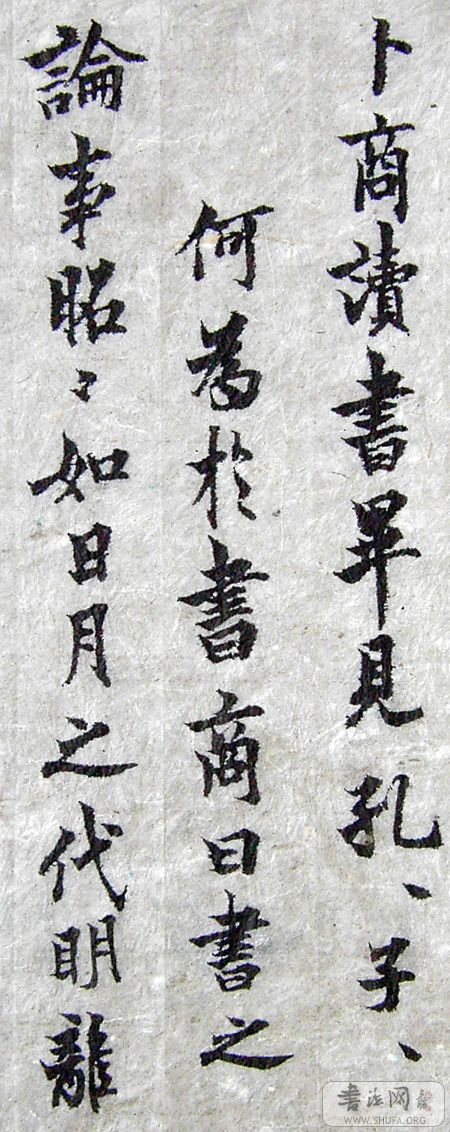 卜商讀書畢見孔、子、
何為於書商曰書之
論事昭〻如日月之代明龍
書法网
WWW.SHUFA.ORG